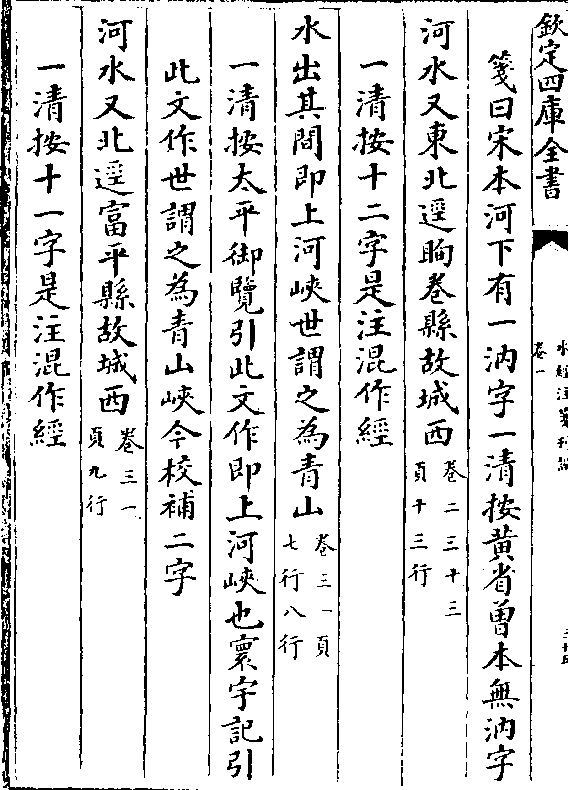 欽定四庫全書
水經注箋刊誤
卷一
箋曰宋本河下有一汭字一清按黃省曾本無汭字
河水又東北逕眴卷縣故城西卷二三十三頁十三行
一清按十二字是注混作經
水出其間即上河峽世謂之為青山卷三一頁七行八行
一清按太平御覽引此文作即上河峽也寰宇記引
此文作世謂之為青山峽今校補二字
河水又北逕富平縣故城西卷三一頁九行
一清按十一字是注混作經